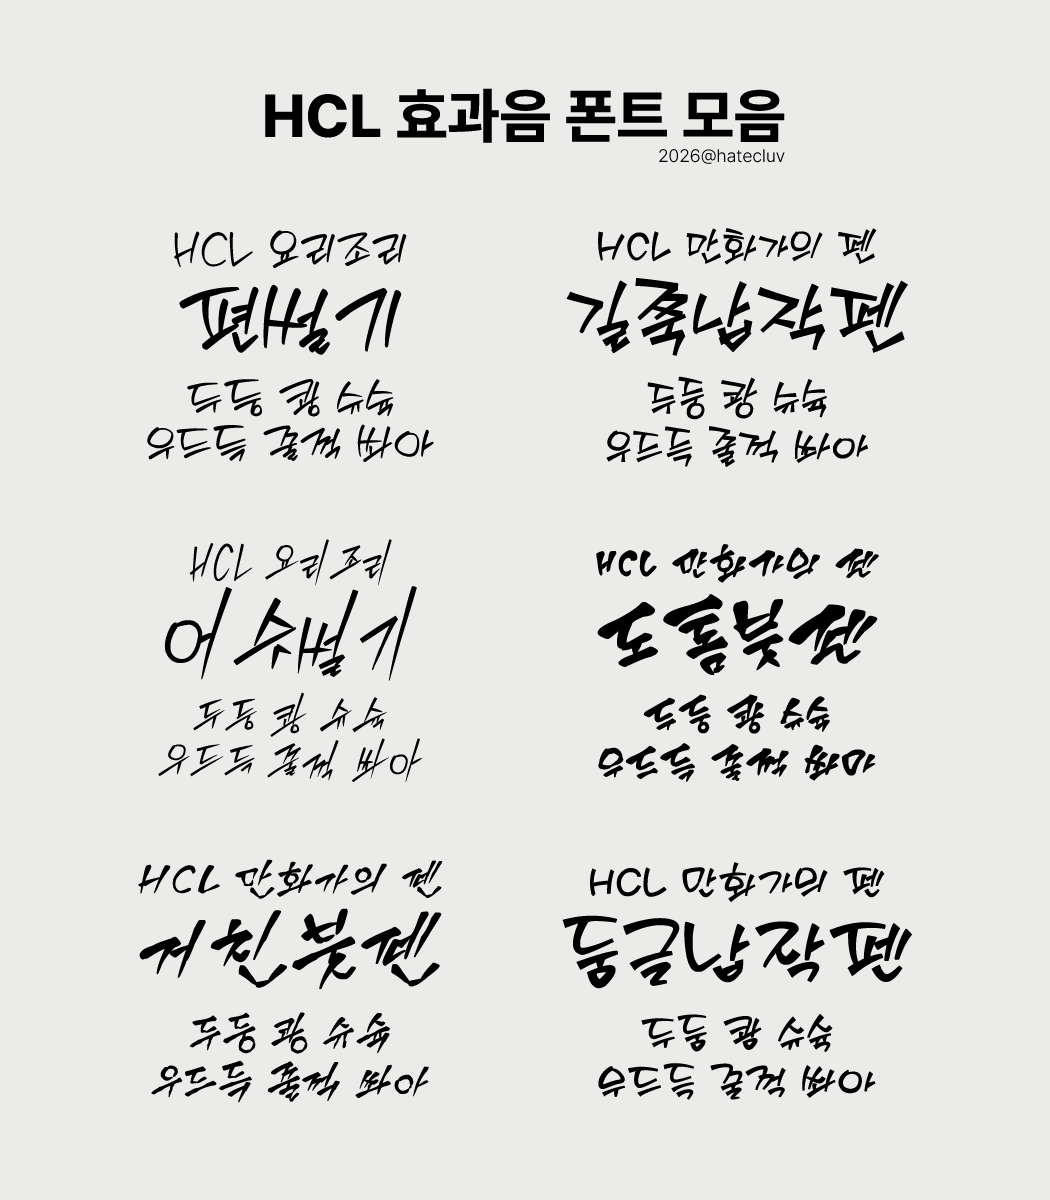 HCL 효과음 폰트 모음
2026@hatecluv
HCL 요리조리
편썰기
두둥 쾅 슈슉
우드득 꿀꺽 쏴아
HCL 만화가의 펜
길쭉납작펜
두둥 쾅 슈슉
우드득 꿀꺽 쏴아
HCL 요리조리
어슷썰기
두둥 쾅 슈슉
우드득 꿀꺽 쏴아
HCL 만화가의 펜
도톰붓펜
두둥 쾅 슈슉
우드득 꿀꺽 쏴아
HCL 만화가의 펜
거친붓펜
두둥 쾅 슈슉
우드득 꿀꺽 쏴아
HCL 만화가의 펜
둥글납작펜
두둥 쾅 슈슉
우드득 꿀꺽 쏴아